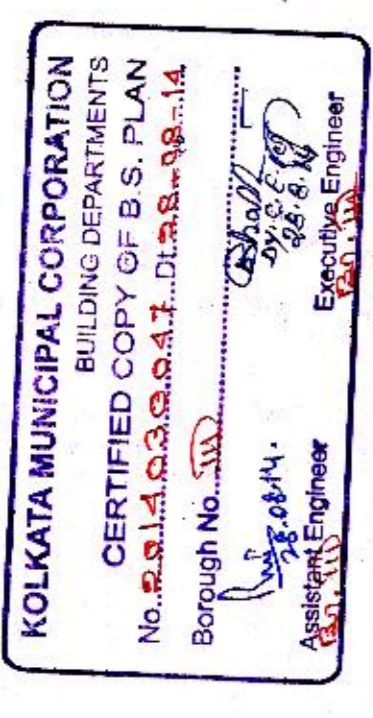 KOLKATA MUNICIPAL CORPORATION
BUILDING DEPARTMENTS
CERTIFIED COPY OF B.S. PLAN
No. 2014030047 Dt. 28-08-14
Borough No. III
28.08.14.
Dy. C. E.
28.8.14
Assistant Engineer
Executive Engineer
Br. III
Br. III